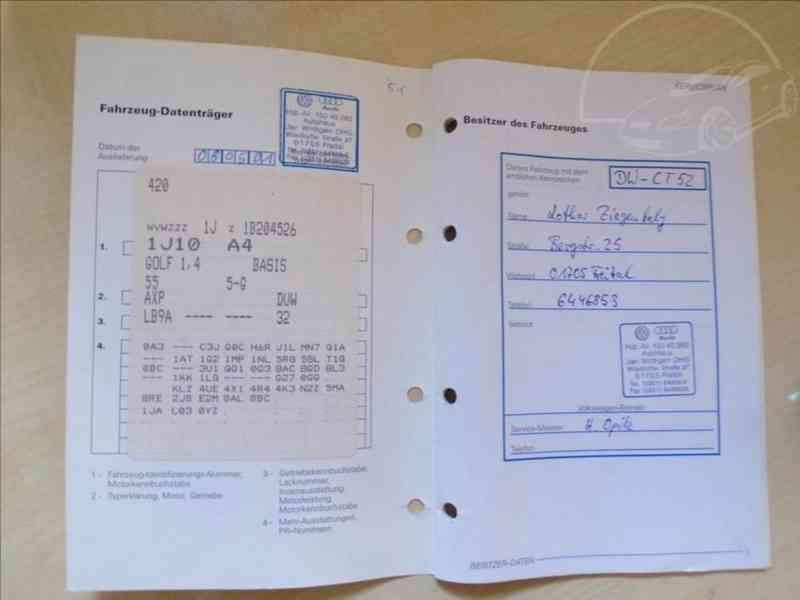 SERVICEPLAN
Fahrzeug-Datenträger
Datum der
Auslieferung
Audi
Autohaus
01705 Freital
420
WVWZZZ 1J Z 1B204526
1J10 A4
GOLF 1,4 BASIS
55 5-G
AXP DUW
LB9A ---- ---- 32
1.
2.
3.
4.
0A3 --- C3J Q0C H6R J1L MN7 Q1A
--- 1AT 1G2 1MP 1NL 5RG 5SL T1G
0BC --- 3U1 QQ1 0G3 8AC 8GD 8L3
--- 1KK 1LG --- --- 9Z7 0GG
KLZ 4UE 4X1 4R4 4K3 NZ2 5MA
8RE 2JB E2M 0AL 0BC
1JA L03 0YZ
1 - Fahrzeug-Identifizierungs-Nummer,
Motorkennbuchstabe
2 - Typerklärung, Motor, Getriebe
3 - Getriebekennbuchstabe,
Lacknummer,
Innenausstattung,
Motorleistung,
Motorkennbuchstabe
4 - Mehr-Ausstattungen,
PR-Nummern
Besitzer des Fahrzeuges
Dieses Fahrzeug mit dem
amtlichen Kennzeichen
DW-CT 52
gehört:
Name
Lothar
Straße
Bergstr. 25
Wohnort
01705 Freital
Telefon
6446853
Betreut:
Audi
Autohaus
01705 Freital
Volkswagen-Betrieb
Service-Meister
H. Opitz
Telefon
BESITZER-DATEN